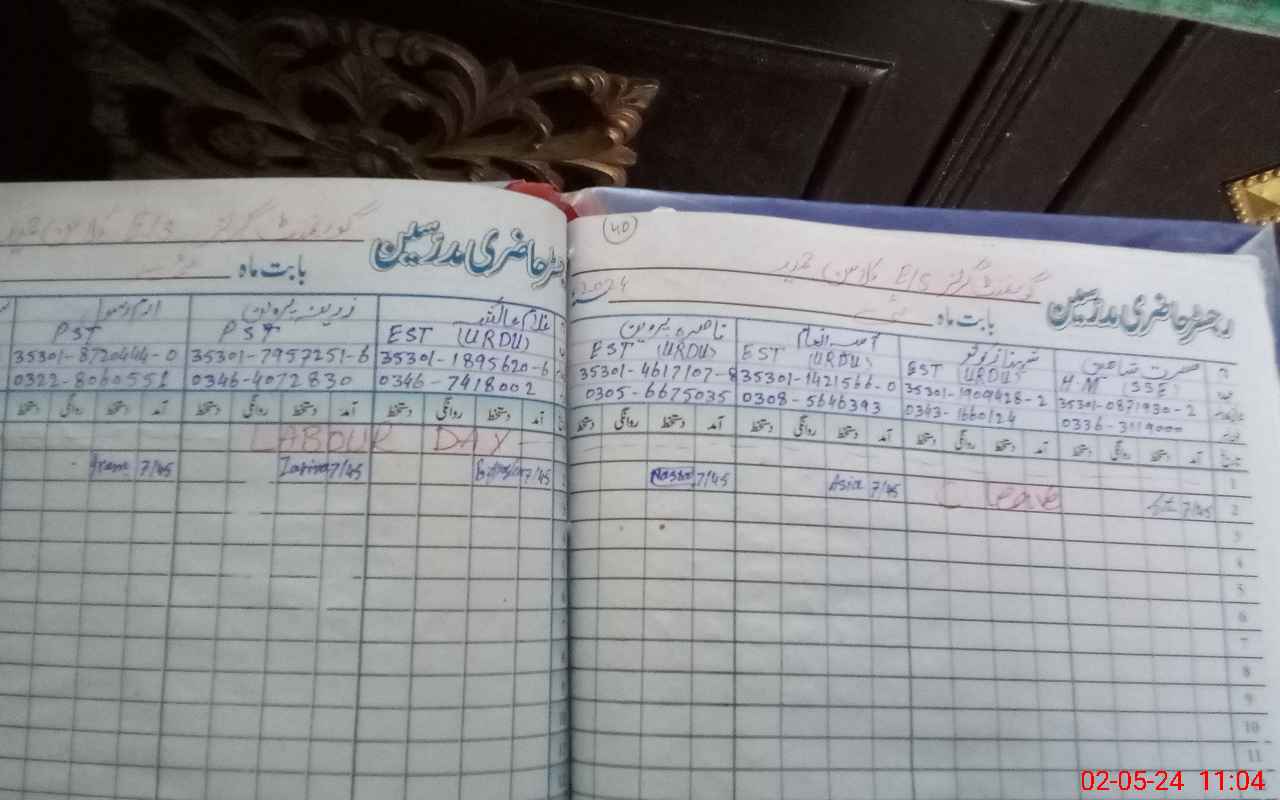 40
گورنمنٹ گرلز E/S
رجسٹر حاضری مدرسین
بابت ماہ
2024
نصرت شاہین
H.M (SSE)
35301-0871930-2
0336-3119000
EST (URDU)
35301-1909428-2
0343-1660124
EST (URDU)
35301-1421566-0
0308-5646393
ناصرہ پروین
EST (URDU)
35301-4617107-8
0305-6675035
آمد دستخط روانگی دستخط آمد دستخط روانگی دستخط آمد دستخط روانگی دستخط آمد دستخط روانگی دستخط
1
2 7/45 Leave Asia 7/45 7/45
3
4
5
6
7
8
9
10
11
گورنمنٹ گرلز E/S
رجسٹر حاضری مدرسین
بابت ماہ
EST (URDU)
35301-1895620-6
0346-7418002
زرینہ پروین
PST
35301-7957251-6
0346-4072830
PST
35301-8720444-0
0322-8060551
آمد دستخط روانگی دستخط آمد دستخط روانگی دستخط آمد دستخط روانگی دستخط
LABOUR DAY
7/45 Zarina 7/45 Iram 7/45
02-05-24 11:04